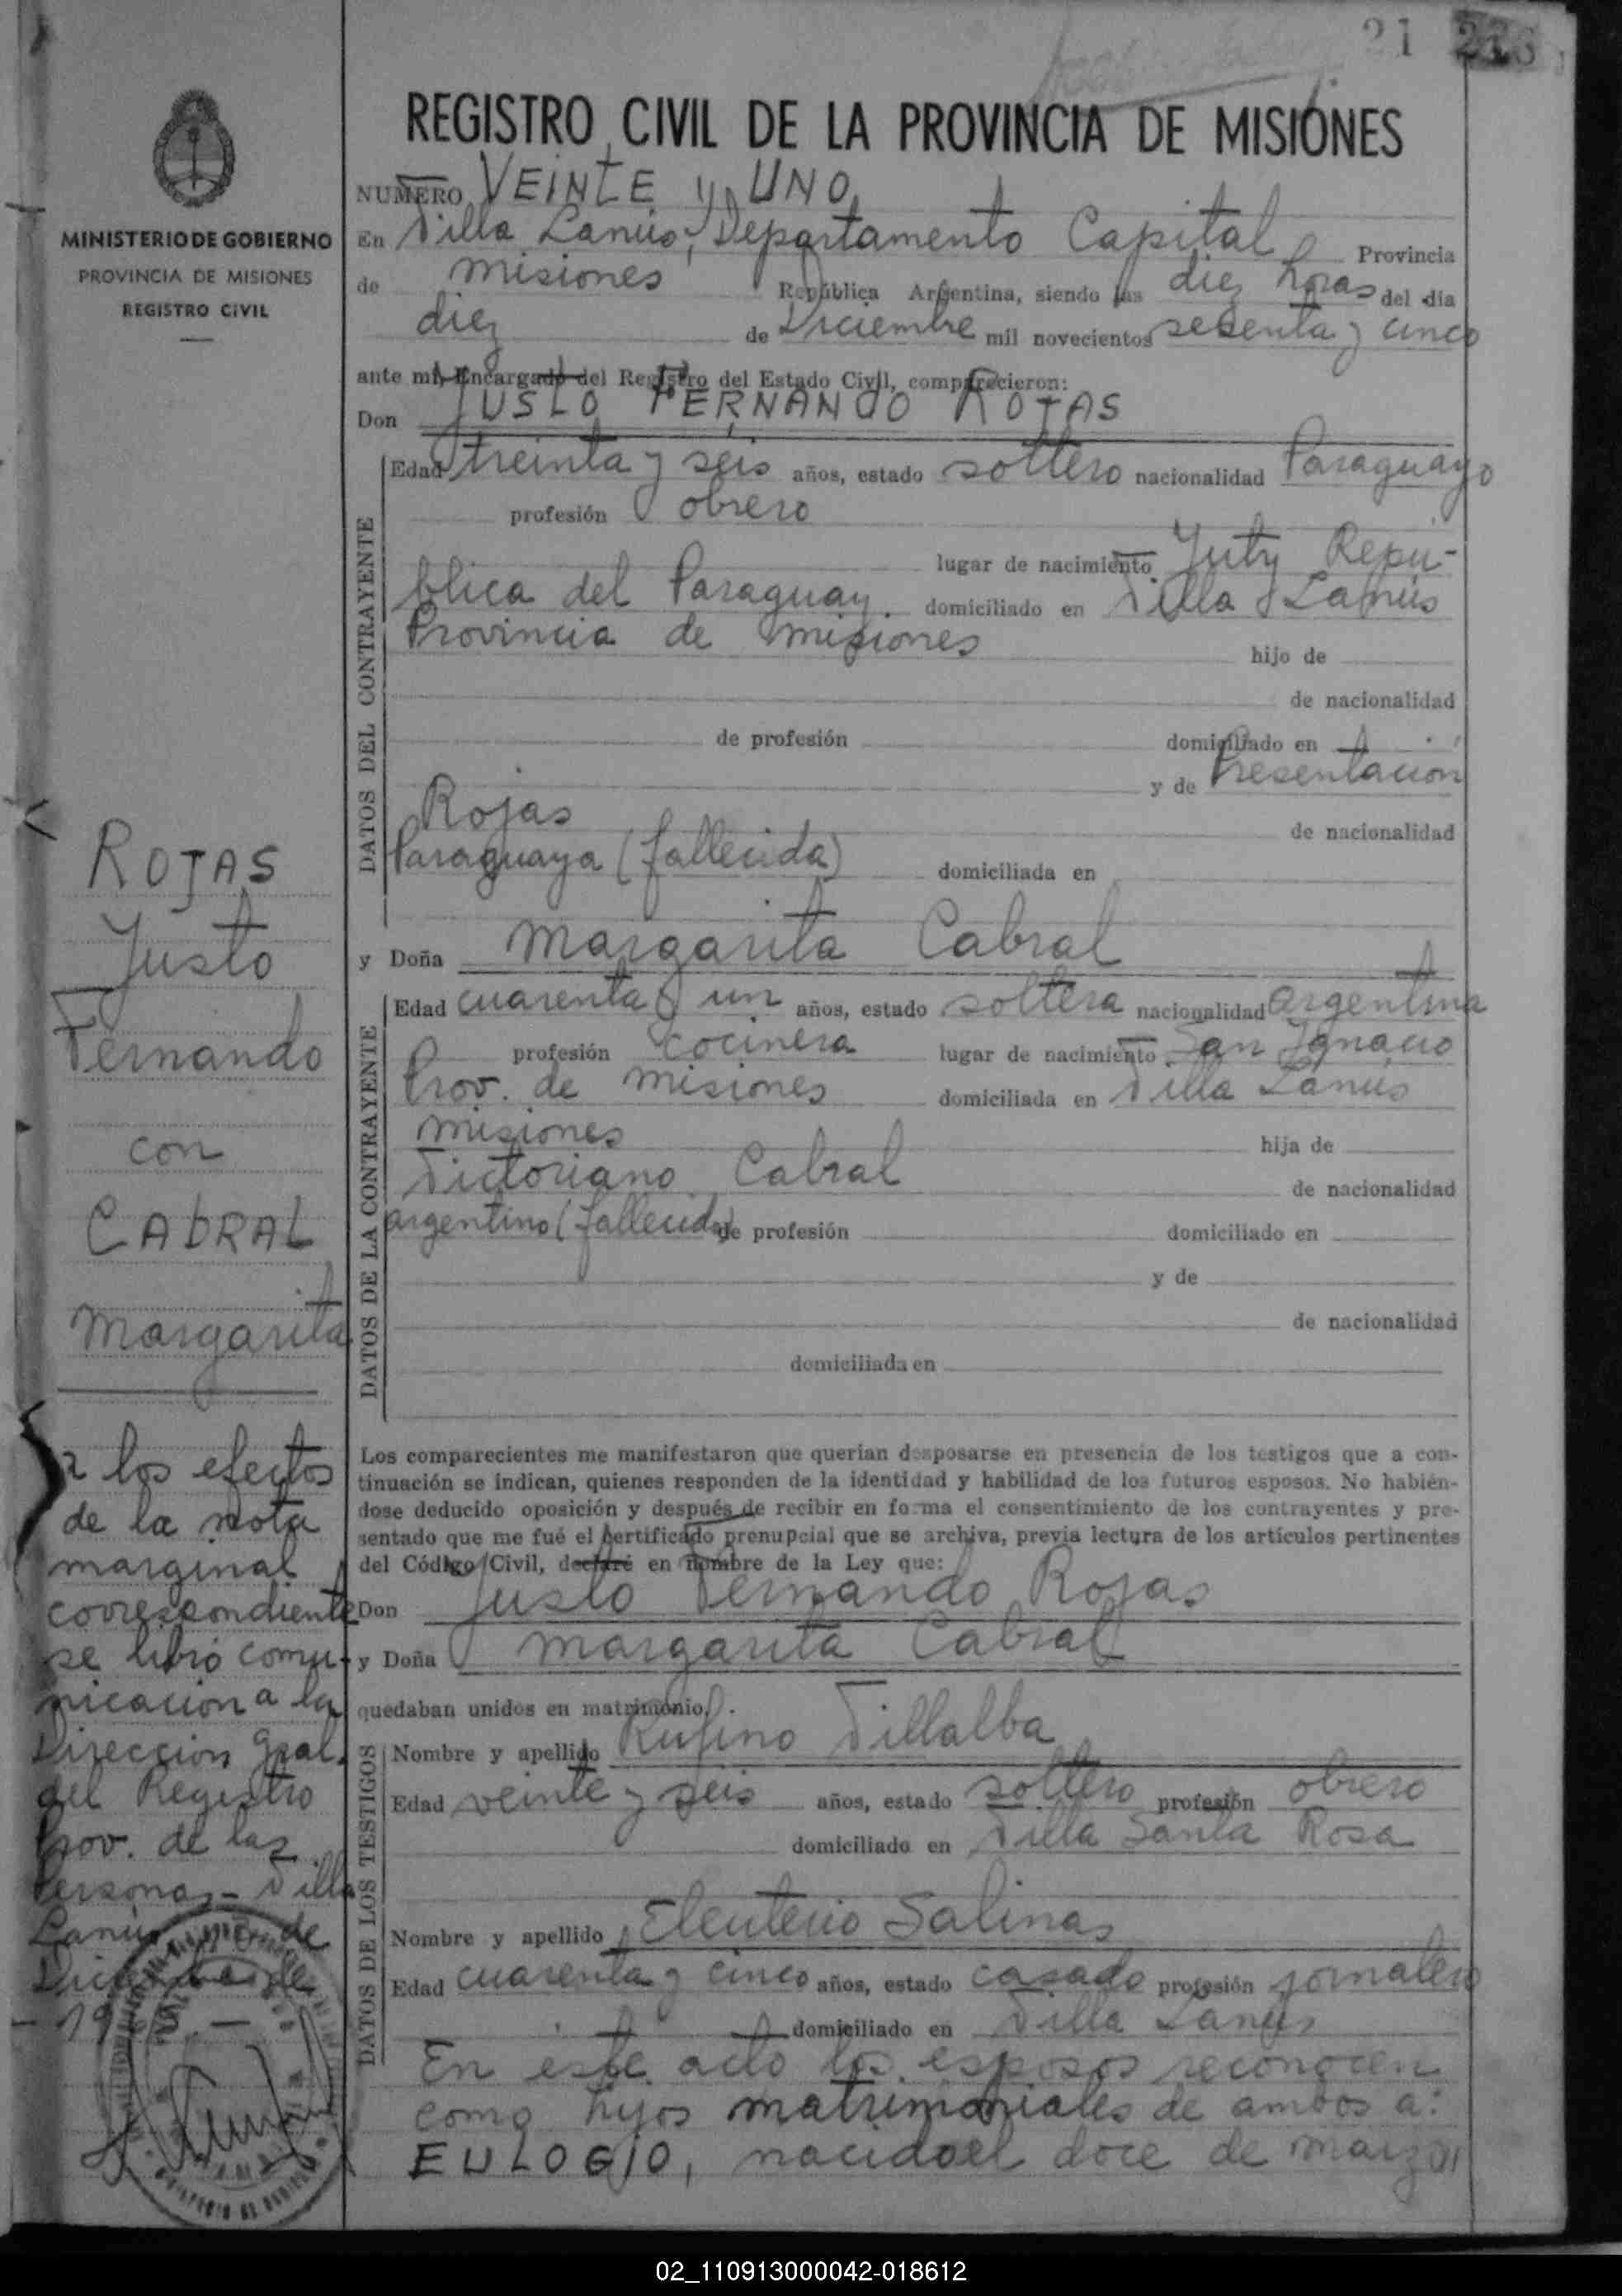 21
REGISTRO CIVIL DE LA PROVINCIA DE MISIONES
MINISTERIO DE GOBIERNO
PROVINCIA DE MISIONES
REGISTRO CIVIL
NUMERO VEINTE y UNO
En Villa Lanús, Departamento Capital Provincia
de Misiones República Argentina, siendo las diez horas del día
diez de Diciembre mil novecientos sesenta y cinco
ante mí, Encargado del Registro del Estado Civil, comparecieron:
Don JUSTO FERNANDO ROJAS
DATOS DEL CONTRAYENTE
Edad treinta y seis años, estado soltero nacionalidad Paraguayo
profesión obrero
lugar de nacimiento Yuty Repú-
blica del Paraguay. domiciliado en Villa Lanús
Provincia de Misiones hijo de
de nacionalidad
de profesión domiciliado en
y de Presentación
Rojas de nacionalidad
Paraguaya (fallecida) domiciliada en
y Doña Margarita Cabral
DATOS DE LA CONTRAYENTE
Edad cuarenta y un años, estado soltera nacionalidad argentina
profesión cocinera lugar de nacimiento San Ignacio
Prov. de Misiones domiciliada en Villa Lanús
Misiones hija de
Victoriano Cabral de nacionalidad
argentino (fallecido) de profesión domiciliado en
y de
de nacionalidad
domiciliada en
Los comparecientes me manifestaron que querían desposarse en presencia de los testigos que a con-
tinuación se indican, quienes responden de la identidad y habilidad de los futuros esposos. No habién-
dose deducido oposición y después de recibir en forma el consentimiento de los contrayentes y pre-
sentado que me fué el certificado prenupcial que se archiva, previa lectura de los artículos pertinentes
del Código Civil, declaré en nombre de la Ley que:
Don Justo Fernando Rojas
y Doña Margarita Cabral
quedaban unidos en matrimonio.
DATOS DE LOS TESTIGOS
Nombre y apellido Rufino Villalba
Edad veinte y seis años, estado soltero profesión obrero
domiciliado en Villa Santa Rosa
Nombre y apellido Eleuterio Salinas
Edad cuarenta y cinco años, estado casado profesión jornalero
domiciliado en Villa Lanús
En este acto los esposos reconocen
como hijos matrimoniales de ambos a:
EULOGIO, nacido el doce de marzo
ROJAS
Justo
Fernando
con
CABRAL
Margarita
a los efectos
de la nota
marginal
correspondiente
se libró comu-
nicación a la
Dirección Gral.
del Registro
Prov. de las
Personas - Villa
Lanús de
Diciembre de
02_110913000042-018612